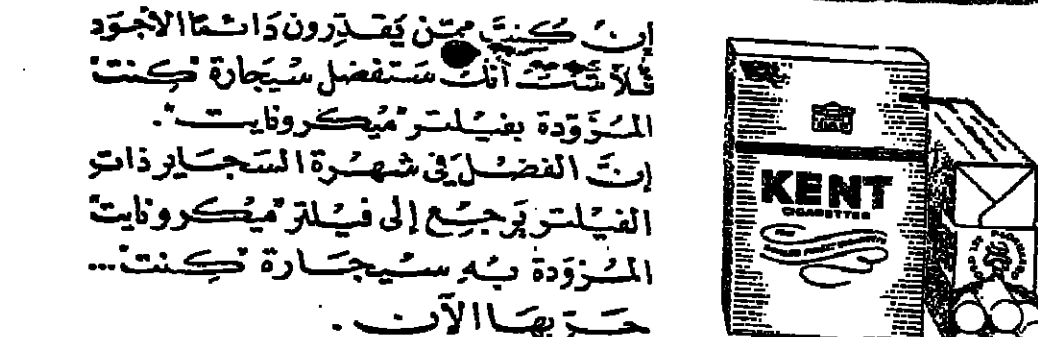 إن كنت ممّن يقدّرون دائمًا الأجود
فلا شك أنك ستفضل سيجارة "كنت"
المزوّدة بفيلتر "ميكرونايت".
إنّ الفضل في شهرة السجاير ذات
الفيلتر يرجع إلى فيلتر "ميكرونايت"
المزودة به سيجارة "كنت"...
جرّبها الآن.
KENT
CIGARETTES